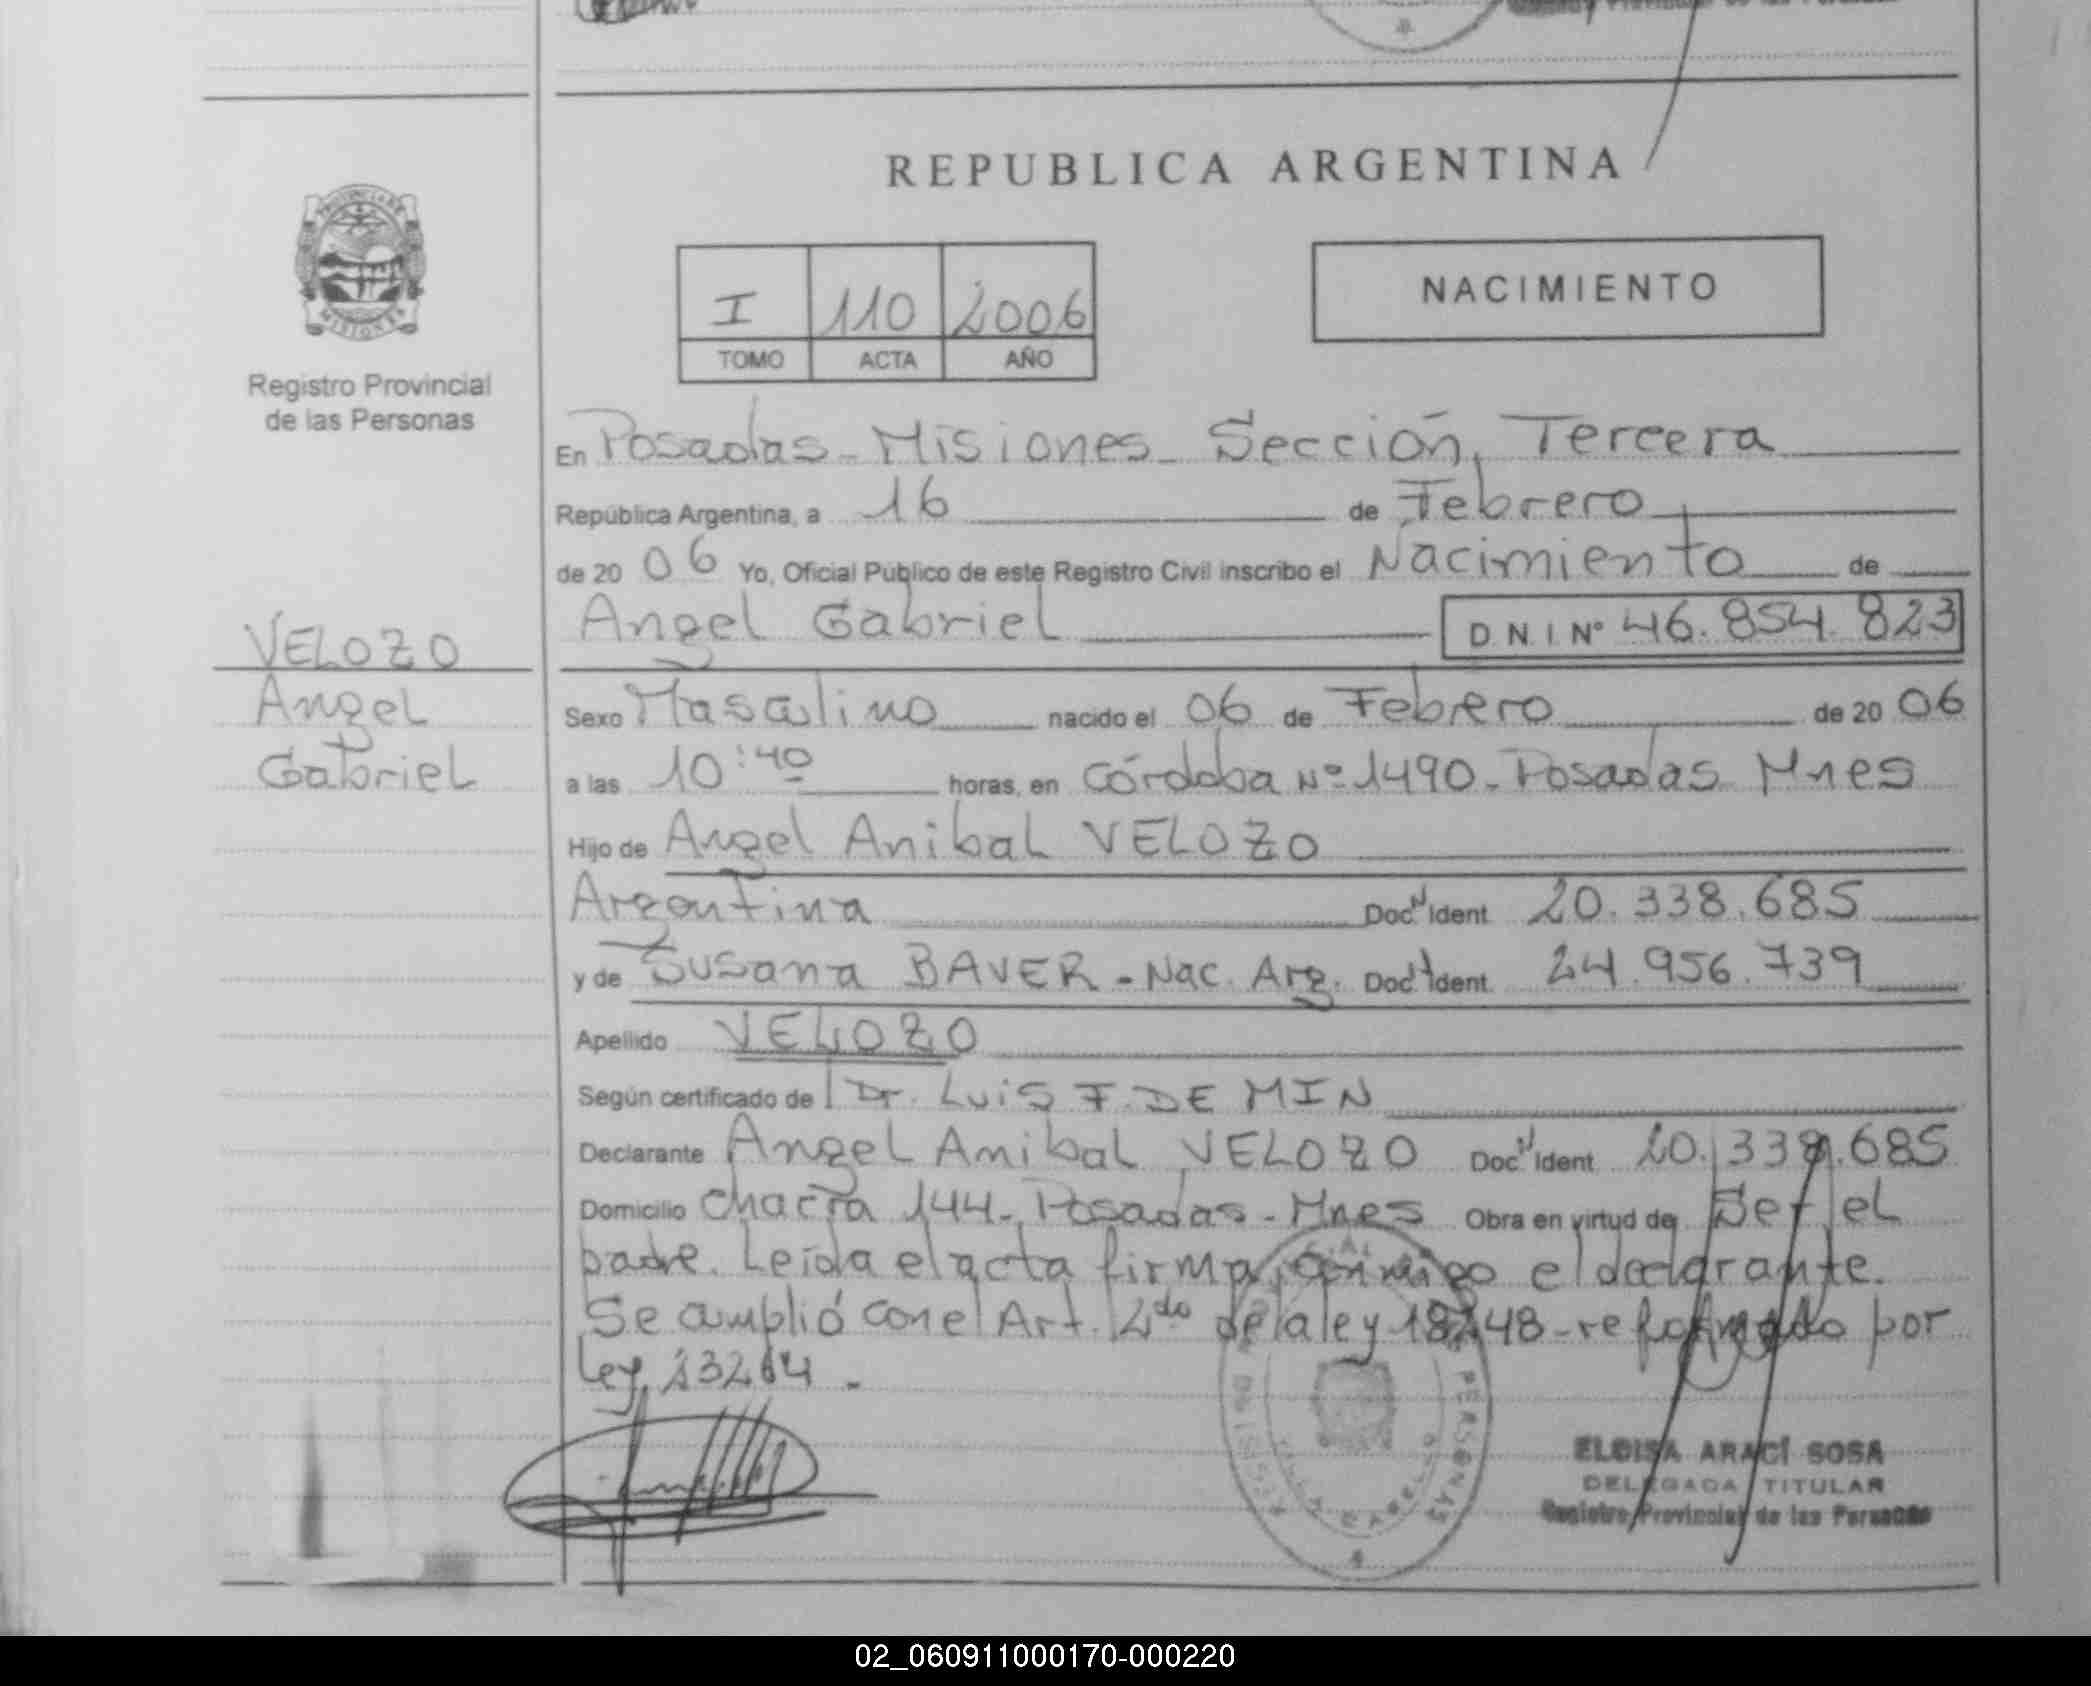 REPUBLICA ARGENTINA
I 110 2006
TOMO ACTA AÑO
NACIMIENTO
PROVINCIA DE
MISIONES
Registro Provincial
de las Personas
VELOZO
Angel
Gabriel
En Posadas - Misiones - Sección, Tercera
República Argentina, a 16 de Febrero
de 20 06 Yo, Oficial Público de este Registro Civil inscribo el Nacimiento de
Angel Gabriel D.N.I Nº 46.854.823
Sexo Masculino nacido el 06 de Febrero de 20 06
a las 10:40 horas, en Córdoba Nº 1490 - Posadas Mnes
Hijo de Angel Anibal VELOZO
Argentina Doc. Ident 20.338.685
y de Susana BAVER - Nac. Arg. Doc. Ident. 24.956.739
Apellido VELOZO
Según certificado de Dr. Luis F. DE MIN
Declarante Angel Anibal VELOZO Doc. Ident. 20.338.685
Domicilio Chacra 144 - Posadas - Mnes Obra en virtud de Ser el
padre. Leída el acta firma conmigo el declarante.
Se amplió con el Art. 2do de la ley 18248 - reformado por
Ley 23264 -
ELOISA ARACÍ SOSA
DELEGADA TITULAR
Registro Provincial de las Personas
02_060911000170-000220